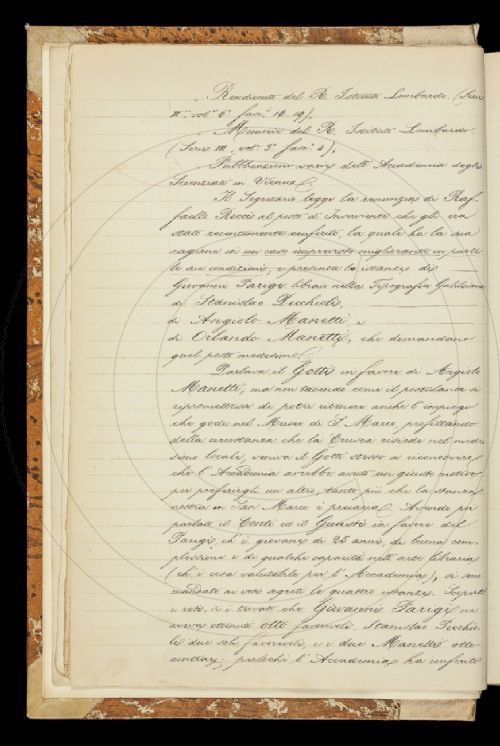 Rendiconti del R. Istituto Lombardo. (Serie
II, vol. 6° fasc. 18. 19).
Memorie del R. Istituto Lombardo
(Serie III, vol. 3° fasc. 4).
Pubblicazioni varie dell'Accademia degli
Scienziati in Vienna.
Il Segretario legge la renunzia di Raf-
faello Ricci al posto di Inserviente che gli era
stato recentemente conferito, la quale ha la sua
ragione in un caso improvviso migliorante in parte
le sue condizioni; e presenta le istanze di
Giovacchino Parigi libraio nella Tipografia Galileiana
di Stanislao Pecchioli,
di Angiolo Manetti e
di Orlando Manetti, che domandano
quel posto medesimo.
Parlava il Gotti in favore di Angiolo
Manetti; ma non tacendo come il postulante si
ripromettesse di poter ritenere anche l'impiego
che gode nel Museo di S. Marco, profittando
della circostanza che la Crusca risiede nel mede-
simo locale, veniva il Gotti stesso a riconoscere
che l'Accademia avrebbe avuto un giusto motivo
per preferirgli un altro, tanto più che la stanza
nostra in San Marco è precaria. Avendo poi
parlato il Conti ed il Guasti in favore del
Parigi, ch'è giovane di 25 anni, di buona com-
plessione e di qualche capacità nell'arte libraria
(ch'è cosa valutabile per l'Accademia), si sono
mandate ai voti segreti le quattro istanze. Scoperti
i voti, si è trovato che Giovacchino Parigi ne
aveva ottenuti otto favorevoli, Stanislao Pecchio-
li due soli favorevoli, e i due Manetti otto
contrari; perlochè l'Accademia ha conferito